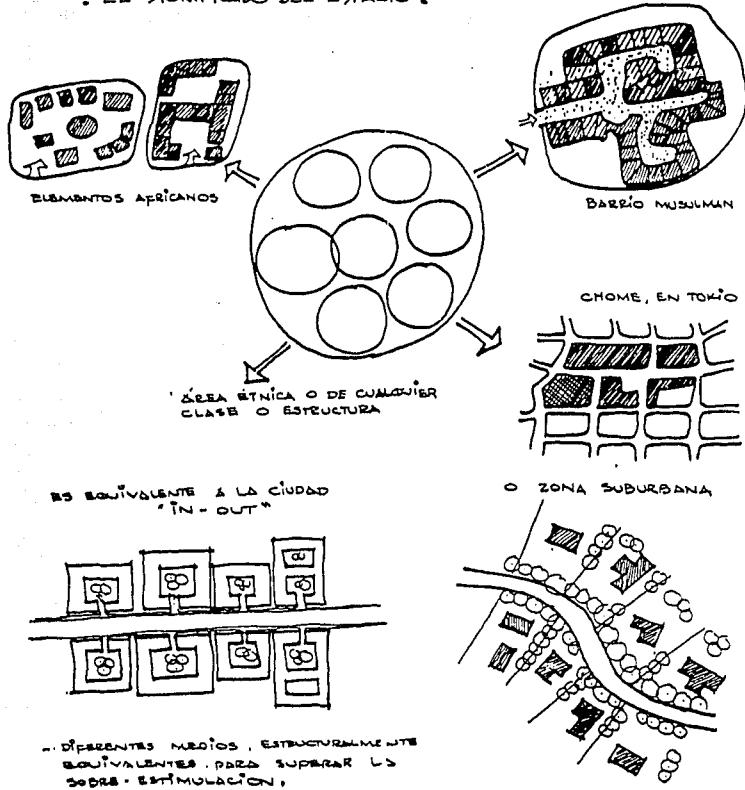 ELEMENTOS AFRICANOS
BARRIO MUSULMAN
CHOME, EN TOKIO
ÁREA ÉTNICA O DE CUALQUIER
CLASE O ESTRUCTURA
ES EQUIVALENTE A LA CIUDAD
"IN - OUT"
O ZONA SUBURBANA
- DIFERENTES MEDIOS, ESTRUCTURALMENTE
EQUIVALENTES PARA SUPERAR LA
SOBRE-ESTIMULACIÓN.